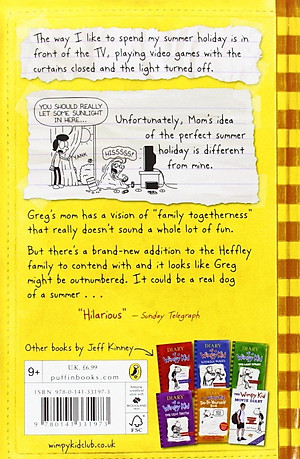 The way I like to spend my summer holiday is in
front of the TV, playing video games with the
curtains closed and the light turned off.
YOU SHOULD REALLY
LET SOME SUNLIGHT
IN HERE...
YANK
HISSSSS!
Unfortunately, Mom's idea
of the perfect summer
holiday is different
from mine.
Greg's mom has a vision of "family togetherness"
that really doesn't sound a whole lot of fun.
But there's a brand-new addition to the Heffley
family to contend with and it looks like Greg
might be outnumbered. It could be a real dog
of a summer . . .
"Hilarious" – Sunday Telegraph
Other books by Jeff Kinney
DIARY
of a
Wimpy Kid
DIARY
of a
Wimpy Kid
DIARY
of a
Wimpy Kid
DIARY
of a
Wimpy Kid
THE UGLY TRUTH
Wimpy Kid
THE
WIMPY KID
MOVIE DIARY
9+
U.K. £6.99
puffinbooks.com
ISBN 978-0-141-33197-3
9 780141 331973
FSC
wimpykidclub.co.uk